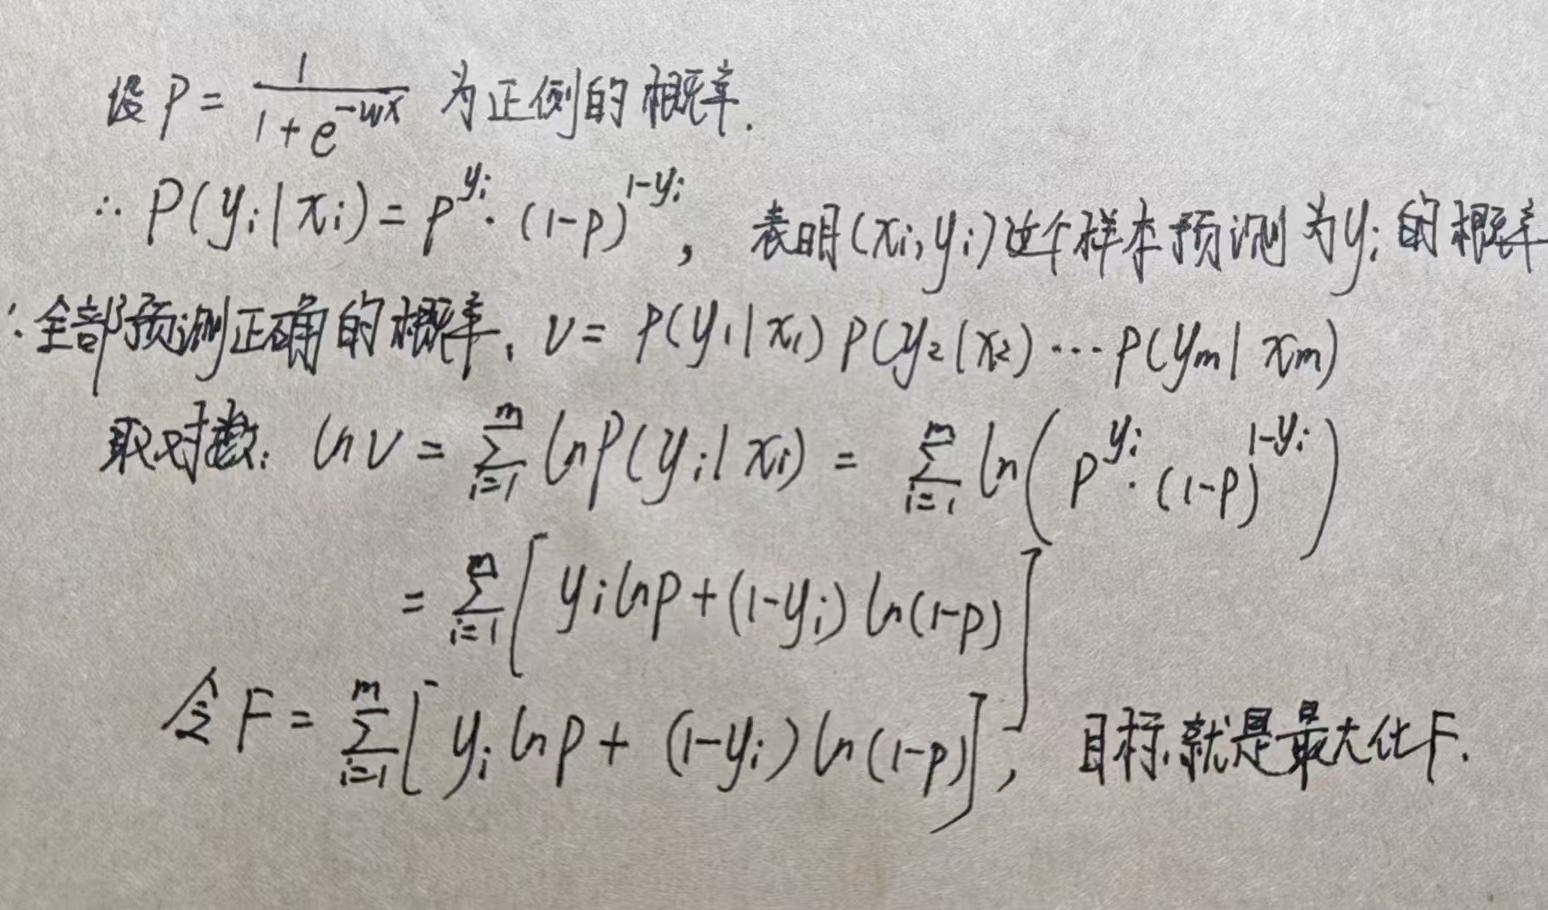 设 P = \frac{1}{1+e^{-wx}} 为正例的概率.
∴ P(y_i|x_i) = p^{y_i}·(1-p)^{1-y_i}, 表明(x_i,y_i)这个样本预测为y_i的概率
∴全部预测正确的概率, V = P(y_1|x_1)P(y_2|x_2)···P(y_m|x_m)
取对数: ln V = \sum_{i=1}^{m} ln P(y_i|x_i) = \sum_{i=1}^{m} ln(p^{y_i}·(1-p)^{1-y_i})
= \sum_{i=1}^{m} [y_i ln p + (1-y_i) ln(1-p)]
令 F = \sum_{i=1}^{m} [y_i ln p + (1-y_i) ln(1-p)], 目标就是最大化F.